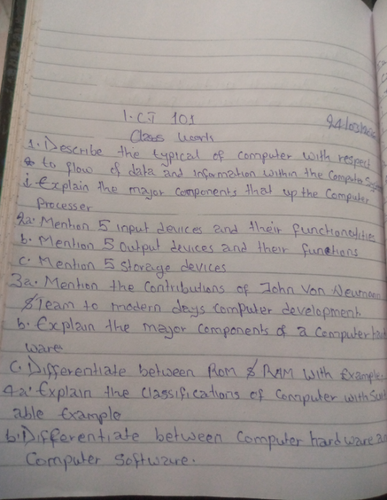 I.CT 101
Class work
1. Describe the typical of computer with respect
to flow of data and information within the Computer
i. Explain the major components that up the Computer
Processer
2a. Mention 5 input devices and their functionalities
b. Mention 5 Output devices and their functions
c. Mention 5 storage devices
3a. Mention the Contributions of John Von
& Team to modern days computer development
b. Explain the major components of a Computer
ware
c. Differentiate between Rom & RAM with Example
4a. Explain the Classifications of Computer with
able Example
b. Differentiate between Computer hardware
Computer Software.